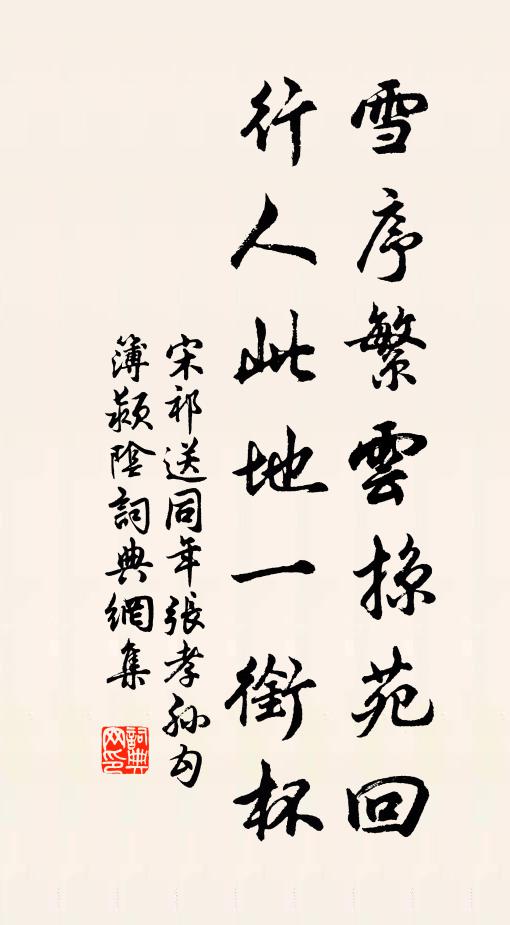 雪序繁雲掠苑回
行人此地一銜杯
宋祁送同年張孝孫勾
簿潁陰詞典網集
詞典网印